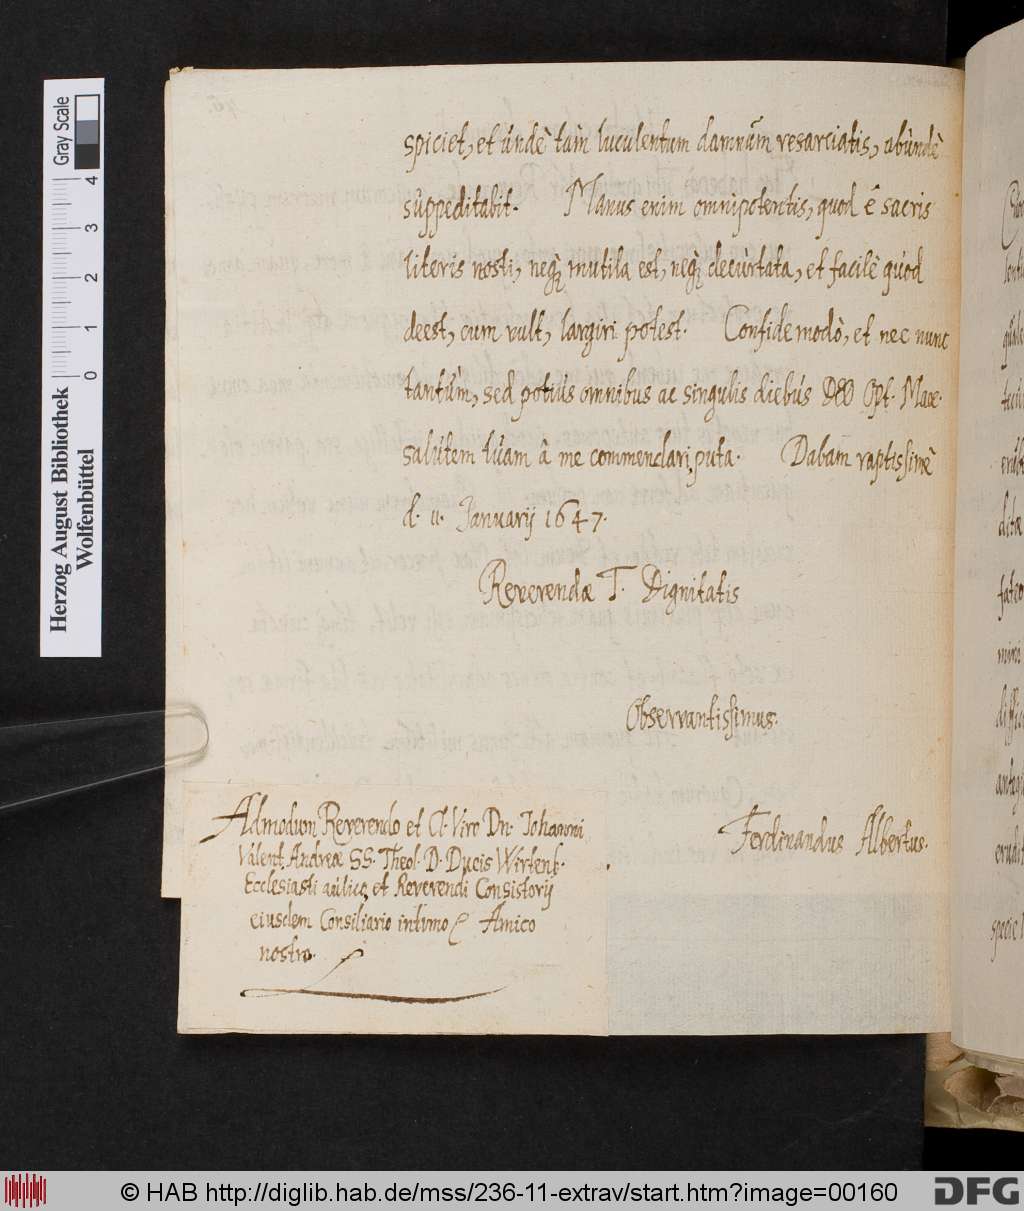 spiciet, et undè tam luculentum damnum resarciatis, abundè
suppeditabit. Manus enim omnipotentis, quod è sacris
literis nosti, neq; mutila est, neq; decurtata, et facilè quod
deest, cum vult, largiri potest. Confide modò, et nec nunc
tantùm, sed potius omnibus ac singulis diebus DEO Opt. Max.
salutem tuam â me commendari, puta. Dabam raptissimè
d. 11. Januarij 1647.
Reverendæ T. Dignitatis
Observantissimus.
Ferdinandus Albertus.
Admodum Reverendo et Cl. Viro Dn. Johanni
Valent. Andreæ SS. Theol. D. Ducis Wirtenb.
Ecclesiasti aulico, et Reverendi Consistorij
eiusdem Consiliario intimo Amico
nostro.
Gray Scale
0 1 2 3 4
Herzog August Bibliothek
Wolfenbüttel
© HAB http://diglib.hab.de/mss/236-11-extrav/start.htm?image=00160
DFG